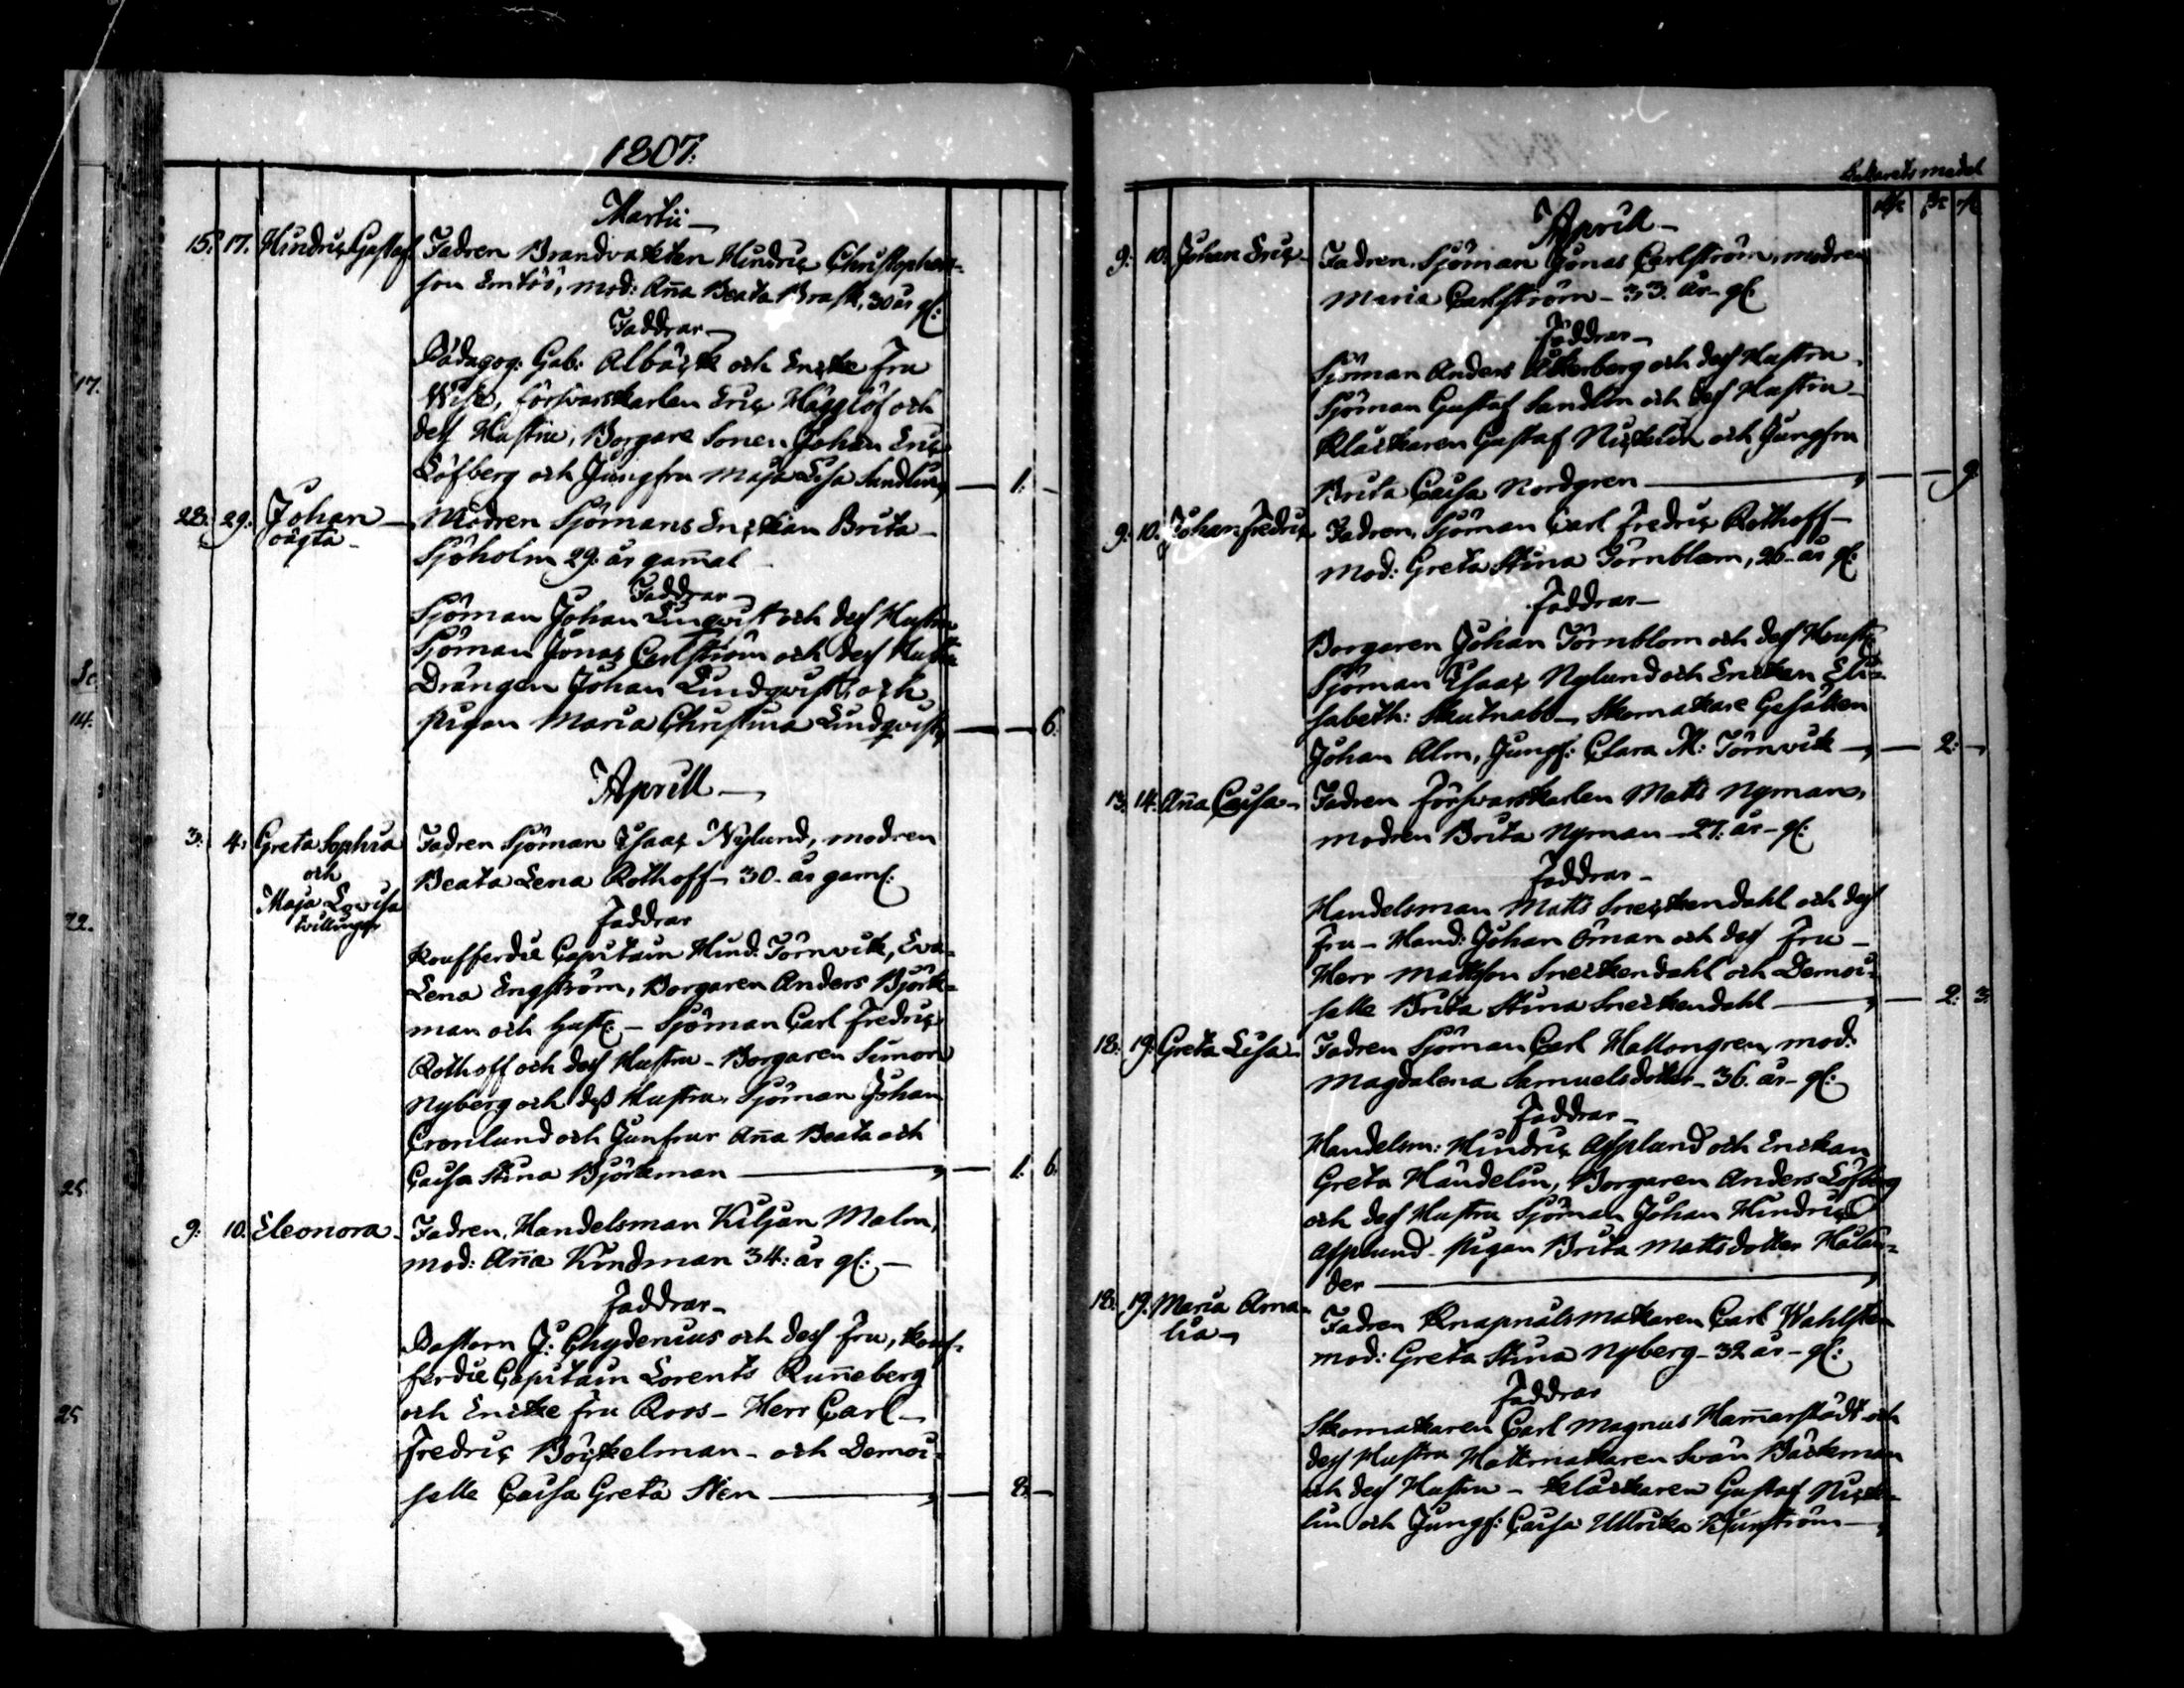 1807.
Martii
15. 17. Hindric Gustaf Fadren Brandvakten Hindric Christophers-
son Emtöö, mod: Aña Beata Brask, 30 år gl:
Faddrar
Pädagog: Gab: Albäck och Encke Fru
Wise, försvarskarlen Eric Hägglöf och
dess Hustru, Borgare Sonen Johan Eric
Löfberg och Jungfru Maja Lisa Sandlund — 1. -
28. 29. Johan Modren Sjömans Enckan Brita
oägta Sjöholm 29. år gam̄al
Faddrar
Sjöman Johan Linqvist och dess Hustru
Sjöman Jonas Carlström och dess Hustru
Drängen Johan Lindqvist och
pigan Maria Christina Lindqvist — — 6.
Aprill
3. 4. Greta Sophia Fadren Sjöman Isaac Nylund, modren
och Beata Lena Rothoff 30. år gaml:
Maja Lovisa
tvillingar Faddrar
Koufferdie Capitain Hind: Törnvik, Eva
Lena Engström, Borgaren Anders Björk-
man och hust: - Sjöman Carl Fredric
Rothoff och dess Hustru - Borgaren Simon
Nyberg och dess Hustru, Sjöman Johan
Cronlund och Junfrur Aña Beata och
Caisa Stina Björkman — 1. 6
9. 10. Eleonora Fadren, Handelsman Kiljan Malm,
mod: Aña Kindman 34: år gl: —
Faddrar
Pastorn J: Chydenius och dess Fru, Kouf-
ferdie Capitain Lorents Ruñeberg
och Encke Fru Roos - Herr Carl
Fredric Böckelman - och Demoi-
selle Caisa Greta Sten — 8. -
17.
14.
22.
25
25
medel
Aprill
9. 10. Johan Eric Fadren, Sjöman Jonas Carlström, modren
Maria Carlström - 33. år - gl:
Faddrar
Sjöman Anders Åkerberg och dess Hustru
Sjöman Gustaf Sandlin och dess Hustru
Klåckaren Gustaf Nickelin och Jungfru
Brita Caisa Nordgren — — 9
9. 10. Johan Fredric Fadren, Sjöman Carl Fredric Rothoff
Mod: Greta Stina Törnblom, 26. år gl:
Faddrar
Borgaren Johan Törnblom och dess Hustr:
Sjöman Isaac Nylund och Enckan Eli-
sabeth: Skutnabb - Skomakare Gesällen
Johan Alm, Jungf: Clara M: Törnvik — 2. -
13. 14. Aña Caisa Fadren försvarskarlen Matts Nyman,
modren Brita Nyman - 27. år - gl:
Faddrar
Handelsman Matts Sneckendahl och dess
Fru - Hand: Johan Öman och dess Fru
Herr Mattson Sneckendahl och Demoi-
selle Brita Stina Sneckendahl — 2. 3.
18. 19. Greta Lisa Fadren Sjöman Carl Hallongren, mod:
Magdalena Samuelsdotter - 36. år - gl:
Faddrar
Handelsm: Hindric Asplund och Enckan
Greta Händelin, Borgaren Anders Löfberg
och dess Hustru Sjöman Johan Hindric
Asplund - pigan Brita Mattsdotter Helan-
der
18. 19. Maria Ama- Fadren Knapnålsmakaren Carl Wahlsten
lia mod: Greta Stina Nyberg - 32 år - gl:
Faddrar
Skomakaren Carl Magnus Ham̄arstädt och
dess Hustru Hattmakaren Sven Bäckman
och dess Hustru - klåckaren Gustaf Nicke-
lin och Jungf: Caisa Ullrika